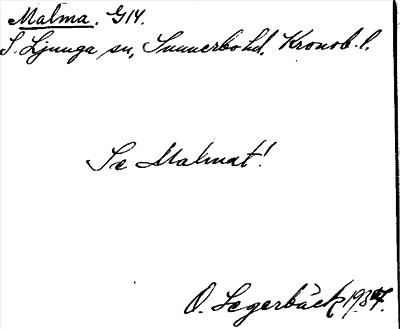 Malma. G14.
S. Ljunga sn, Sunnerbo hd. Kronob. l.
Se Malmat!
O. Segerbäck 1937.